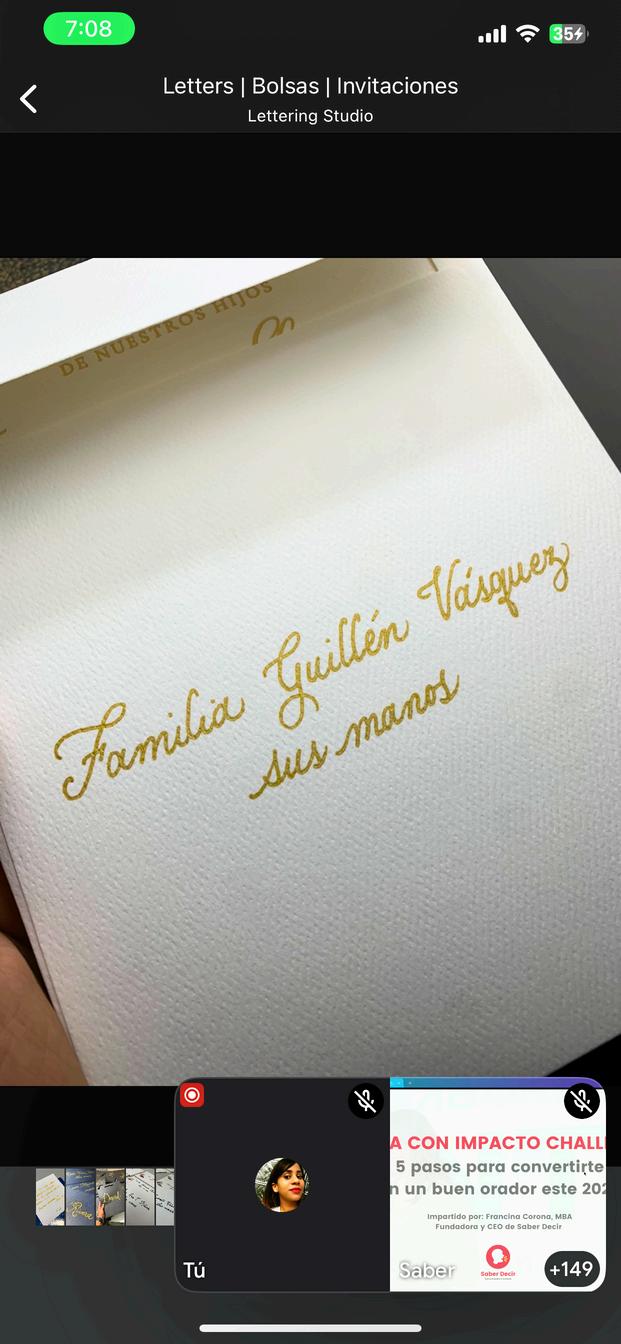 7:08
35
Letters | Bolsas | Invitaciones
Lettering Studio
DE NUESTROS HIJOS
Familia Guillén Vásquez
sus manos
A CON IMPACTO CHALL
5 pasos para convertirte
n un buen orador este 202
Impartido por: Francina Corona, MBA
Fundadora y CEO de Saber Decir
Saber Decir
Tú
Saber
+149